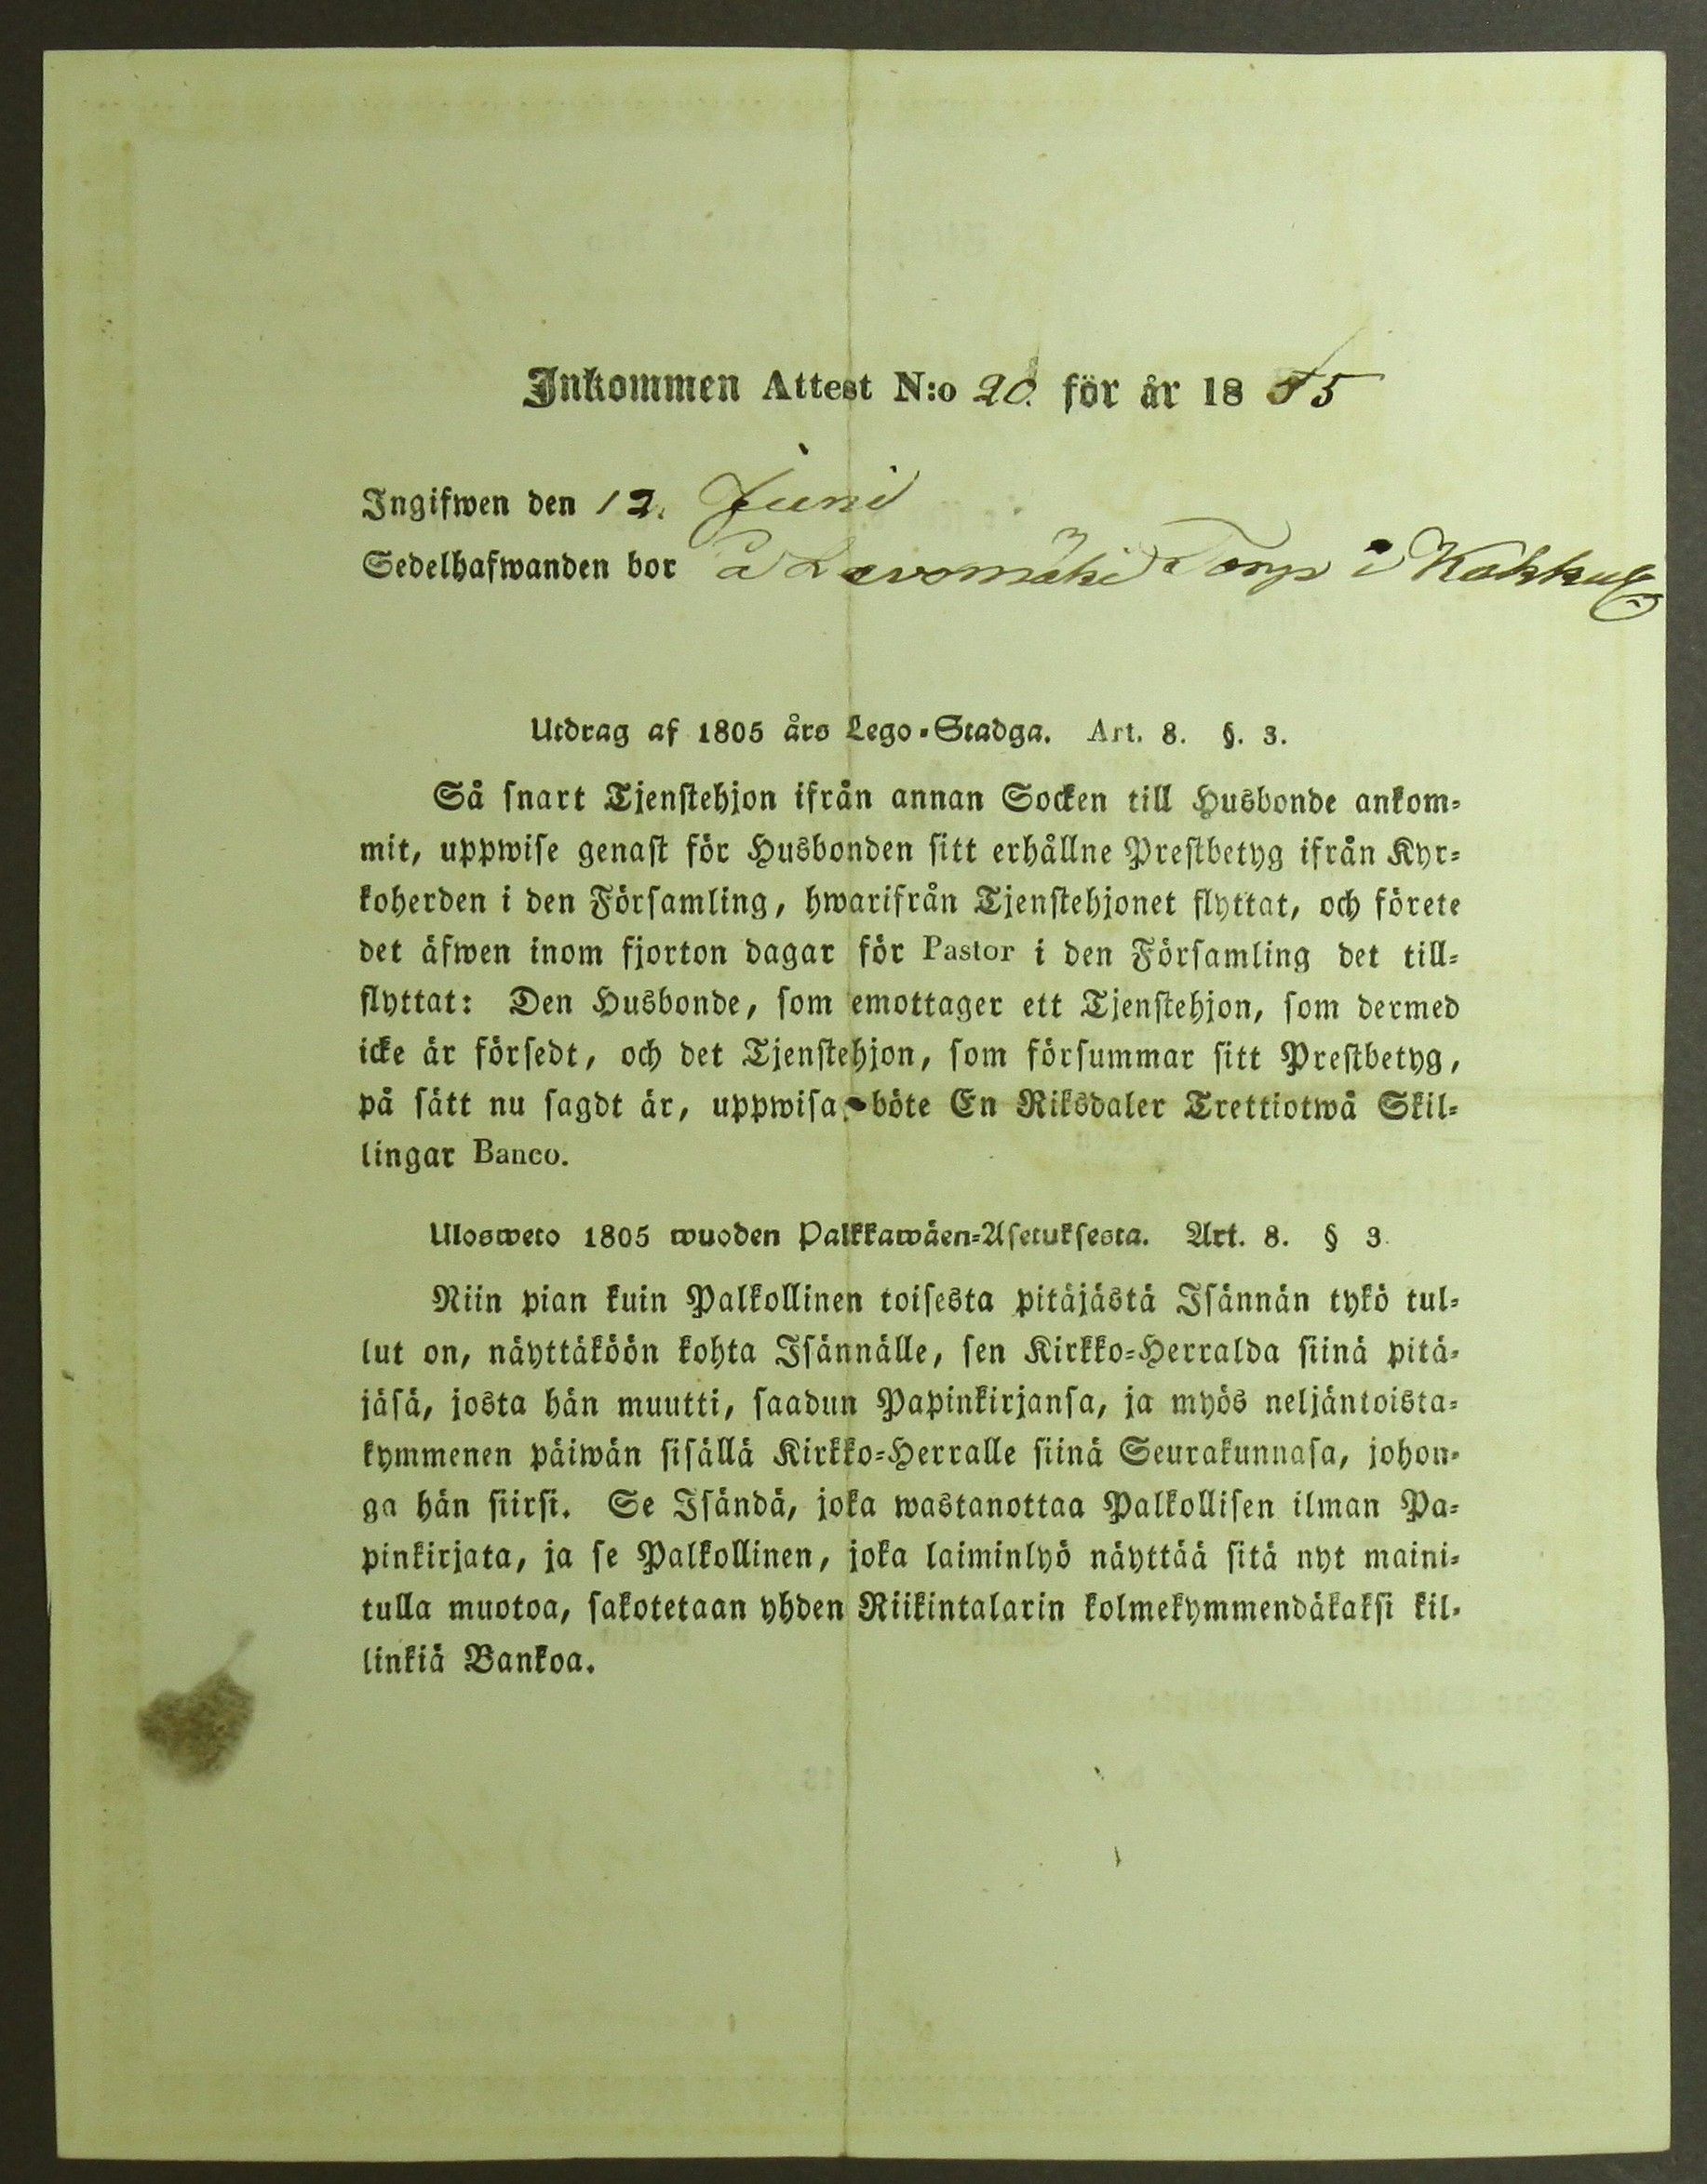 Inkommen Attest N:o 20. för år 1855
Ingifwen den 12. Juni
Sedelhafwanden bor å Torp i
Utdrag af 1805 års Lego-Stadga. Art. 8. §. 3.
Så snart Tjenstehjon ifrån annan Socken till Husbonde ankom-
mit, uppwise genast för Husbonden sitt erhållne Prestbetyg ifrån Kyr-
koherden i den Församling, hwarifrån Tjenstehjonet flyttat, och förete
det äfwen inom fjorton dagar för Pastor i den Församling det till-
flyttat: Den Husbonde, som emottager ett Tjenstehjon, som dermed
icke är försedt, och det Tjenstehjon, som försummar sitt Prestbetyg,
på sätt nu sagdt är, uppwisa, böte En Riksdaler Trettiotwå Skil-
lingar Banco.
Ulosweto 1805 wuoden Palkkawäen-Asetuksesta. Art. 8. § 3.
Niin pian kuin Palkollinen toisesta pitäjästä Isännän tykö tul-
lut on, näyttäköön kohta Isännälle, sen Kirkko-Herralda siinä pitä-
jäsä, josta hän muutti, saadun Papinkirjansa, ja myös neljäntoista-
kymmenen päiwän sisällä Kirkko-Herralle siinä Seurakunnasa, johon-
ga hän siirsi. Se Isändä, joka wastanottaa Palkollisen ilman Pa-
pinkirjata, ja se Palkollinen, joka laiminlyö näyttää sitä nyt maini-
tulla muotoa, sakotetaan yhden Riikintalarin kolmekymmendäkaksi kil-
linkiä Bankoa.